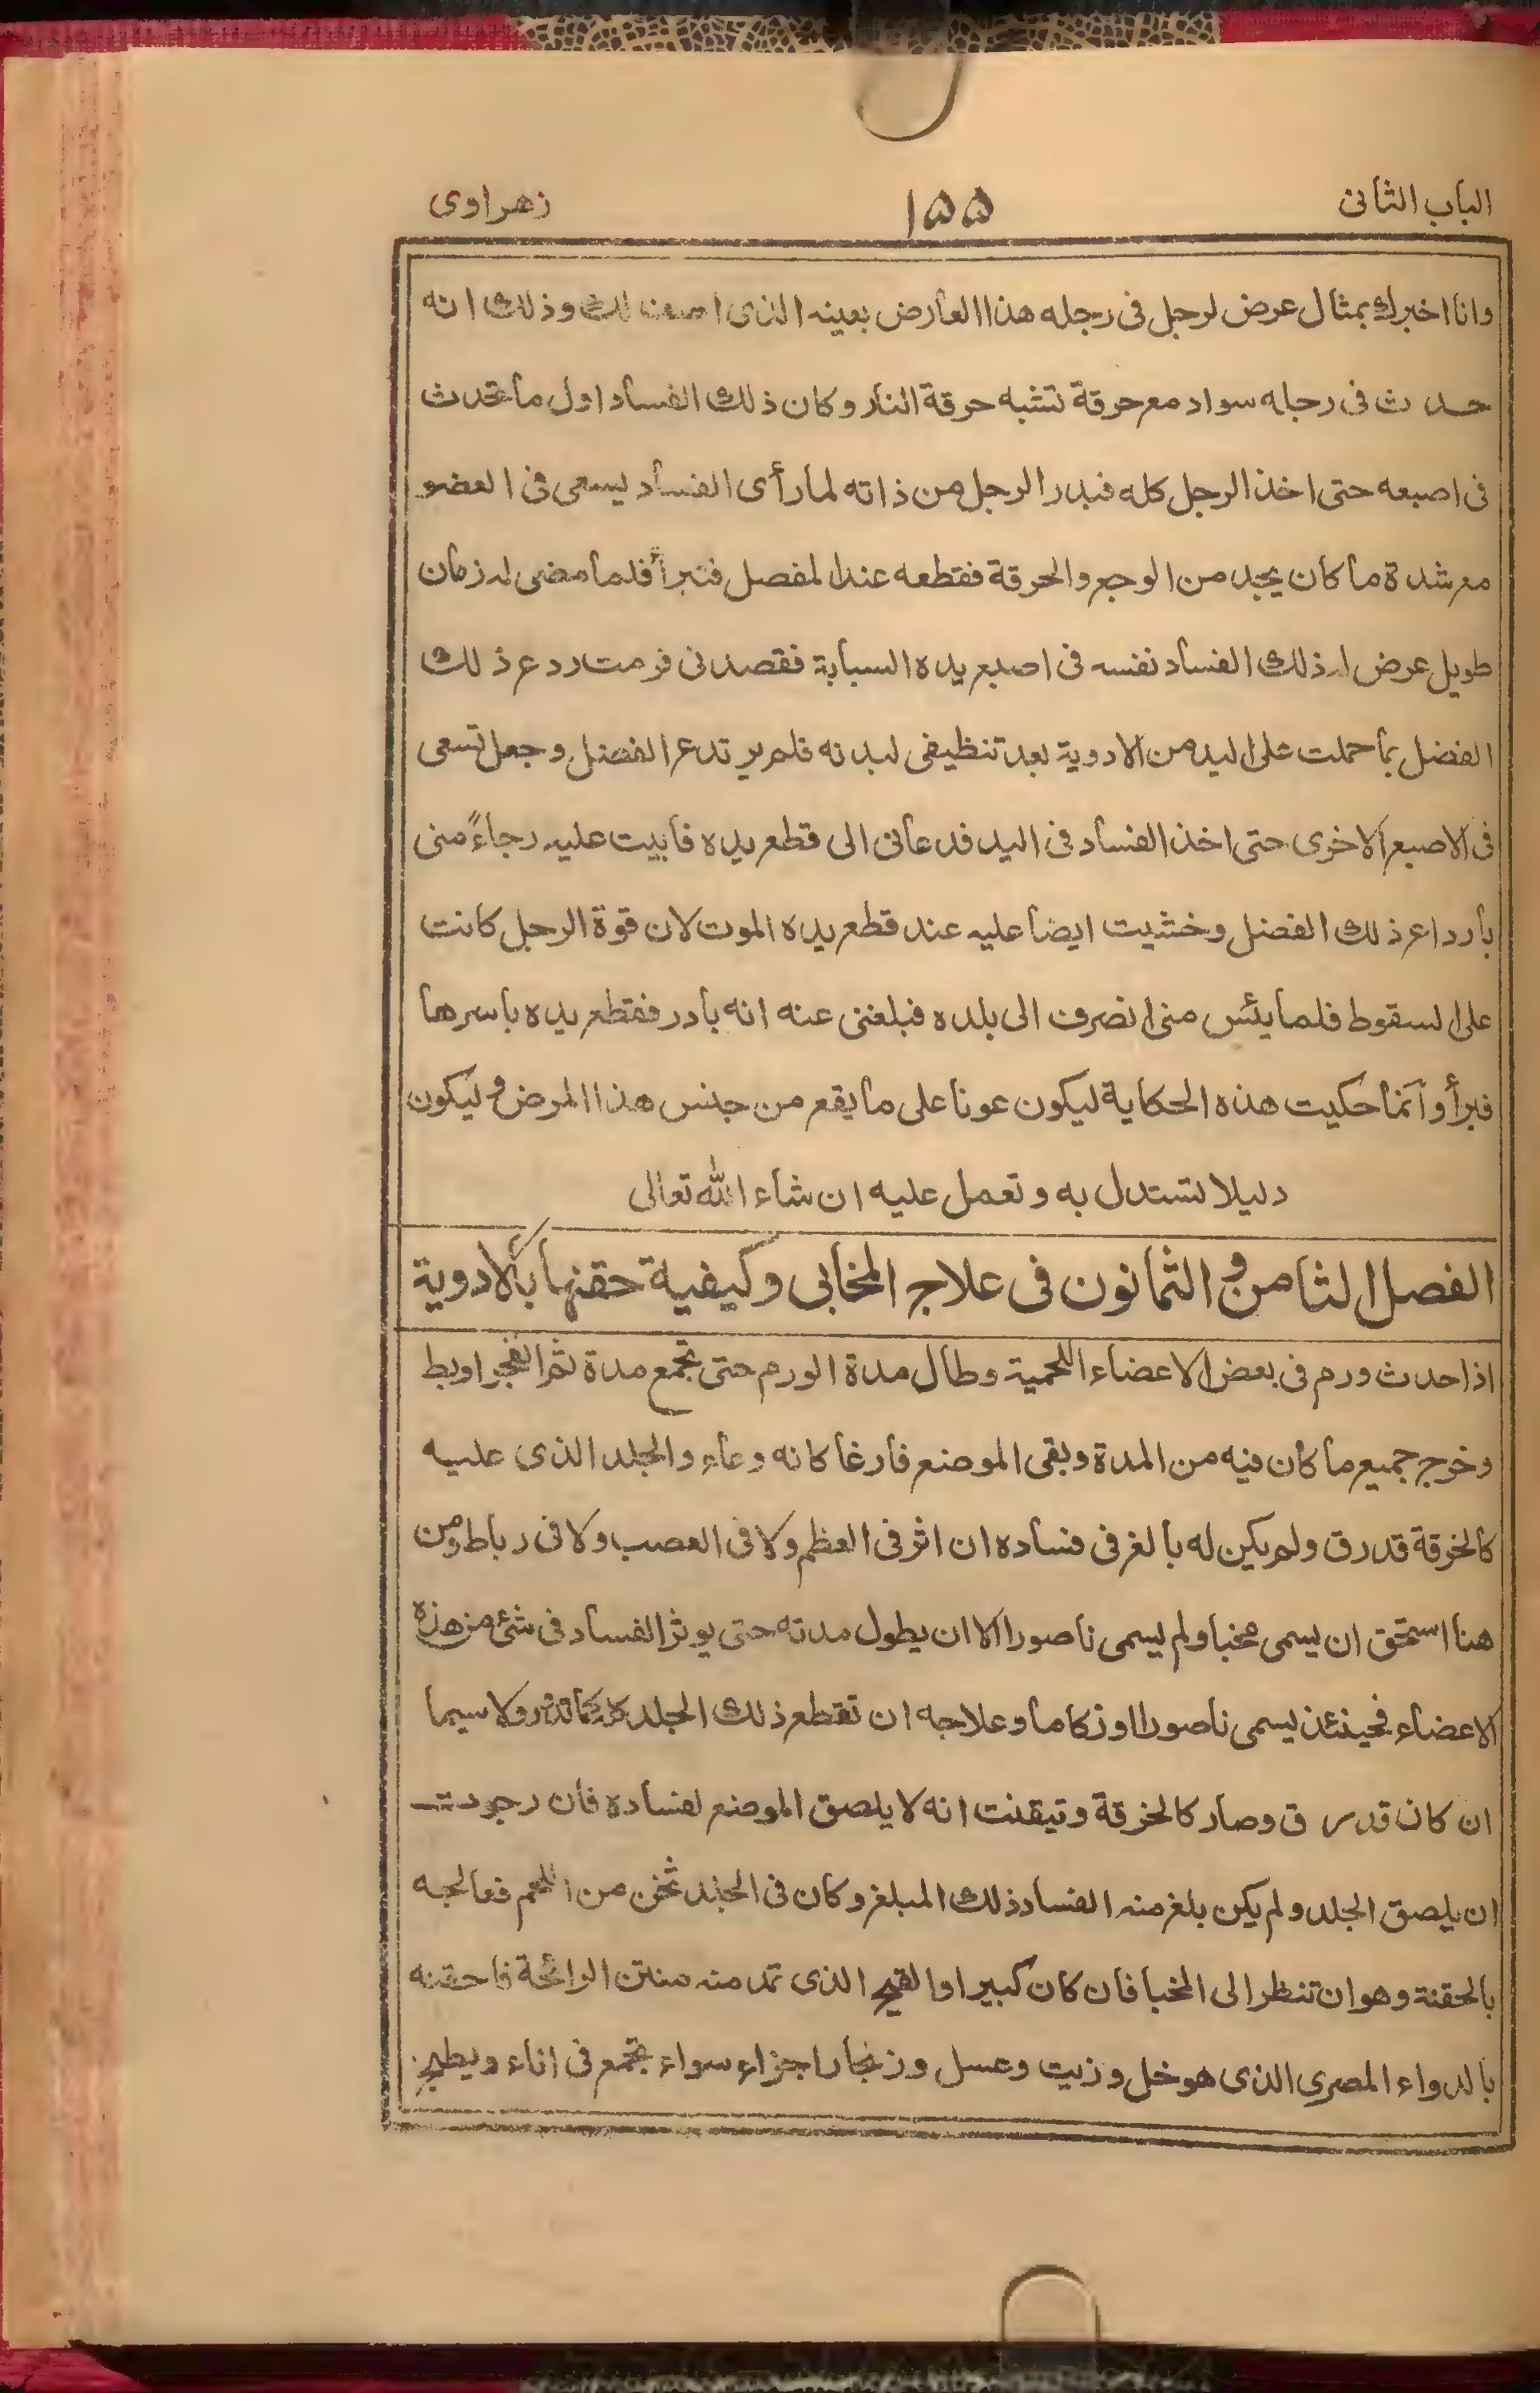 الباب الثانى ١٥٥ زهراوى
وانا اخبرك بمثال عرض لرجل فى رجله هذا العارض بعينه الذى لك وذلك انه
حدث فى رجله سواد مع حرقة تشبه حرقة النار وكان ذلك الفساد اول ما تحدث
فى اصبعه حتى اخذ الرجل كله فبدر الرجل من ذاته لما رأى الفساد ليسعى فى العضو
مع شدة ما كان يجد من الوجع والحرقة فقطعه عند المفصل فتبرأ فلما مضى له زمان
طويل عرض له ذلك الفساد نفسه فى اصبع يده السبابة فقصدنى فرمت ردع ذلك
الفضل بما حملت على اليد من الادوية بعد تنظيفى لبدنه فلم يرتدع الفضل وجعل تسعى
فى الاصبع الاخرى حتى اخذ الفساد فى اليد فدعانى الى قطع يده فابيت عليه رجاءً منى
بارداع ذلك الفضل وخشيت ايضا عليه عند قطع يده الموت لان قوة الرجل كانت
على السقوط فلما يئس منى انصرف الى بلده فبلغنى عنه انه بادر فقطع يده باسرها
فبرأ وانما حكيت هذه الحكاية ليكون عونا على ما يقع من جنس هذا المرض وليكون
دليلا تستدل به وتعمل عليه ان شاء الله تعالى
الفصل الثامن و الثمانون فى علاج المخابى وكيفية حقنها بالادوية
اذا حدث ورم فى بعض الاعضاء اللحمية وطال مدة الورم حتى تجمع مدة ثم انفجر او بط
وخرج جميع ما كان فيه من المدة وبقى الموضع فارغا كانه وعاء والجلد الذى عليه
كالخرقة قد رق ولم يكن له بالغ فى فساده ان اثر فى العظم ولا فى العصب ولا فى رباط ومن
هنا استحق ان يسمى مخبا ولم يسمى ناصورا الا ان يطول مدته حتى يوثر الفساد فى شئ من هذه
الاعضاء فحينئذ يسمى ناصورا اوزكاما وعلاجه ان تقطع ذلك الجلد كله كما تدور ولا سيما
ان كان قد رق وصار كالخرقة وتيقنت انه لا يلصق الموضع لفساده فان رجوت
ان يلصق الجلد ولم يكن بلغ منه الفساد ذلك المبلغ وكان فى الجلد ثخن من اللحم فعالجه
بالحقنة وهو ان تنظر الى المخبا فان كان كبيرا والقيح الذى تمد منه منتن الرائحة فاحقنه
بالدواء المصرى الذى هو خل وزيت وعسل وزنجار اجزاء سواء تجمع فى اناء ويطبخ